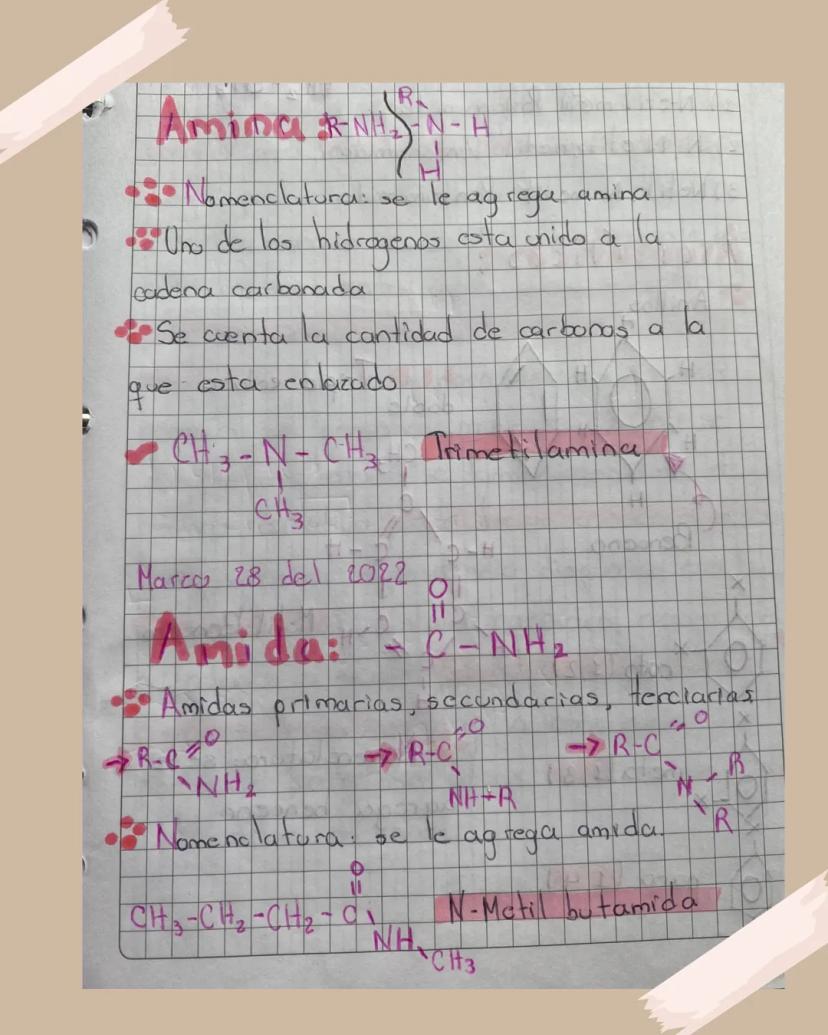 Amina: R-NH₂ R-N-H
H
Nomenclatura: se le agrega amina
Uno de los hidrogenos esta unido a la
cadena carbonada
Se cuenta la cantidad de carbonos a la
que esta enlazado
CH₃-N-CH₃ Trimetilamina
CH₃
Marzo 28 del 2022
O
Amida: -C-NH₂
Amidas primarias, secundarias, terciarias
R-C=O R-C=O R-C=O
NH₂ NH-R N-R
R
Nomenclatura: se le agrega amida.
O
CH₃-CH₂-CH₂-C N-Metil butamida
NH
CH₃